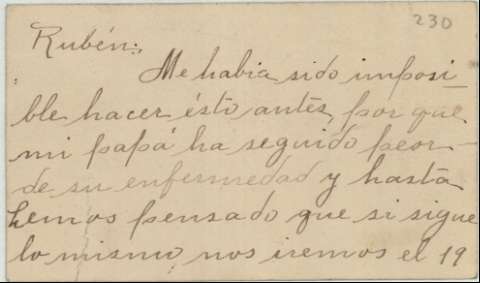 230
Rubén:
Me habia sido imposi_
ble hacer ésto antes, por que
mi papá ha seguido peor
de su enfermedad y hasta
hemos pensado que si sigue
lo mismo, nos iremos el 19